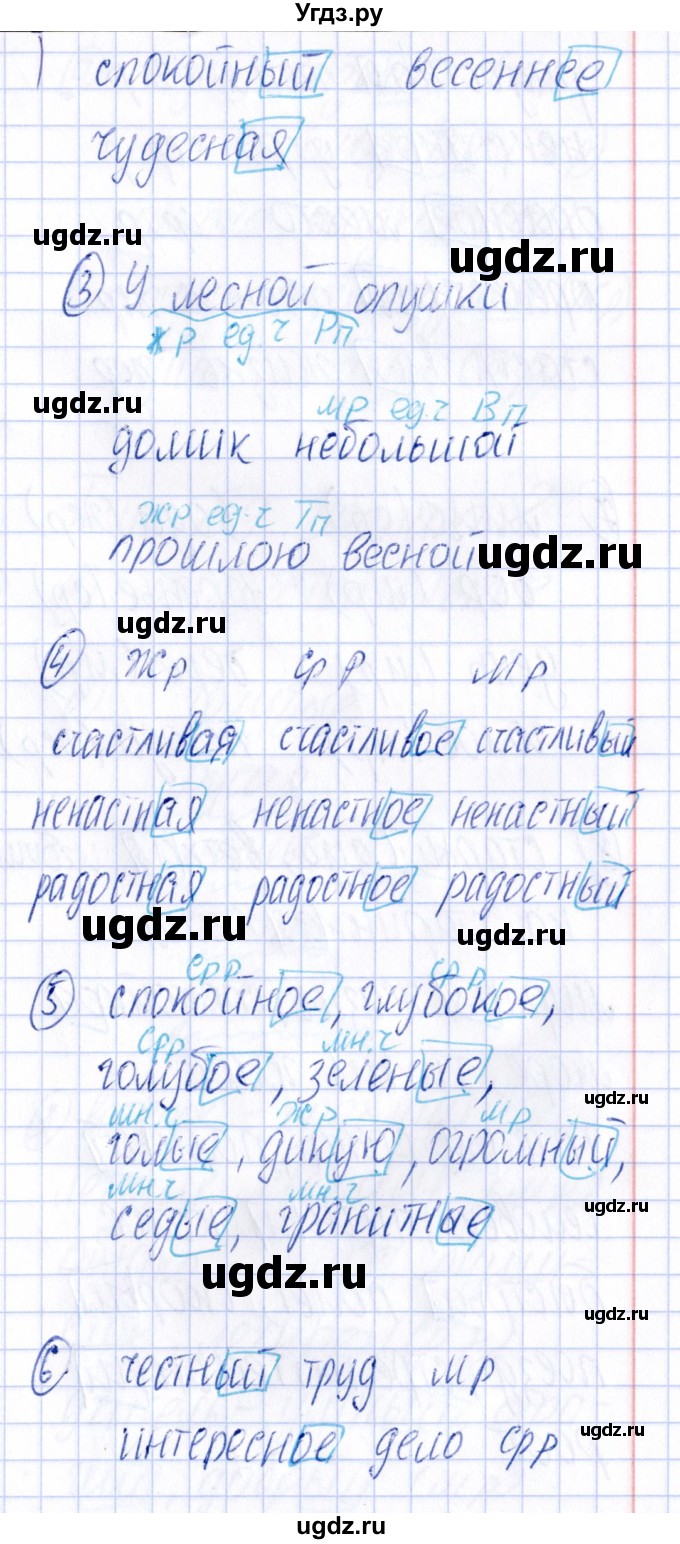 Угдз.ру
спокойный весеннее
чудесная
ugdz.ru
ugdz.ru
3 У лесной опушки
жр ед ч Рп
ugdz.ru
мр ед.ч Вп
домик небольшой
жр ед.ч Тп
прошлою весной
ugdz.ru
ugdz.ru
4 Жр ср р мр
счастливая счастливое счастливый
ненастная ненастное ненастный
радостная радостное радостный
ugdz.ru
ugdz.ru
ср р ср р
5 спокойное, глубокое,
ср р мн.ч
голубое, зеленые,
ugdz.ru
мн.ч жр мр
голые, дикую, огромный,
мн.ч мн.ч
ugdz.ru
седые, гранитные
ugdz.ru
ugdz.ru
6. честный труд мр
ugdz.ru
интересное дело ср р
ugdz.ru